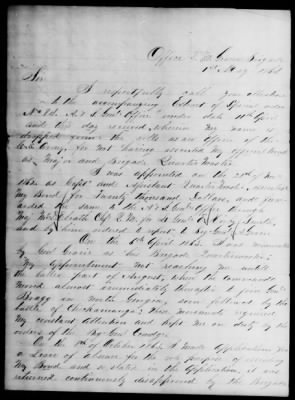 Office Q. M. Evans Brigade
1st May 1864
Sir
I respectfully call your attention
to the accompanying Extract of Special order
No 86. A. & I. Genl Office under date 11th April
and this day received wherein my name is
dropped from the rolls as an officer of the
C.S. Army, for not having executed Official Bond
as Major and Brigade Quarter Master.
I was appointed on the 21st of
1862 as Captn and Assistant Quarter Master, executed
my Bond for Twenty Thousand Dollars, and for-
warded the same to the A. & I. Genl Office, through
Maj Chf Q. M. for Lt Genl E. Kirby Smith,
and by him ordered to report to Brig Genl
On the 6th April 1863. I was nominated
by Genl Gracie as his Brigade Quartermaster.
My Appointment not reaching me untill
the latter part of August, when the command
moved almost immediately thereafter to join Genl
Bragg in North Georgia, soon followed by the
battle of Chickamauga. These movements required
my constant attention and kept me on duty by the
orders of the Brig Genl Comdg.
On the 1st of October 1863. I made application for
a Leave of absence for the sole purpose of executing
My Bond and so stated in the application, it was
returned disapproved by the Brigade